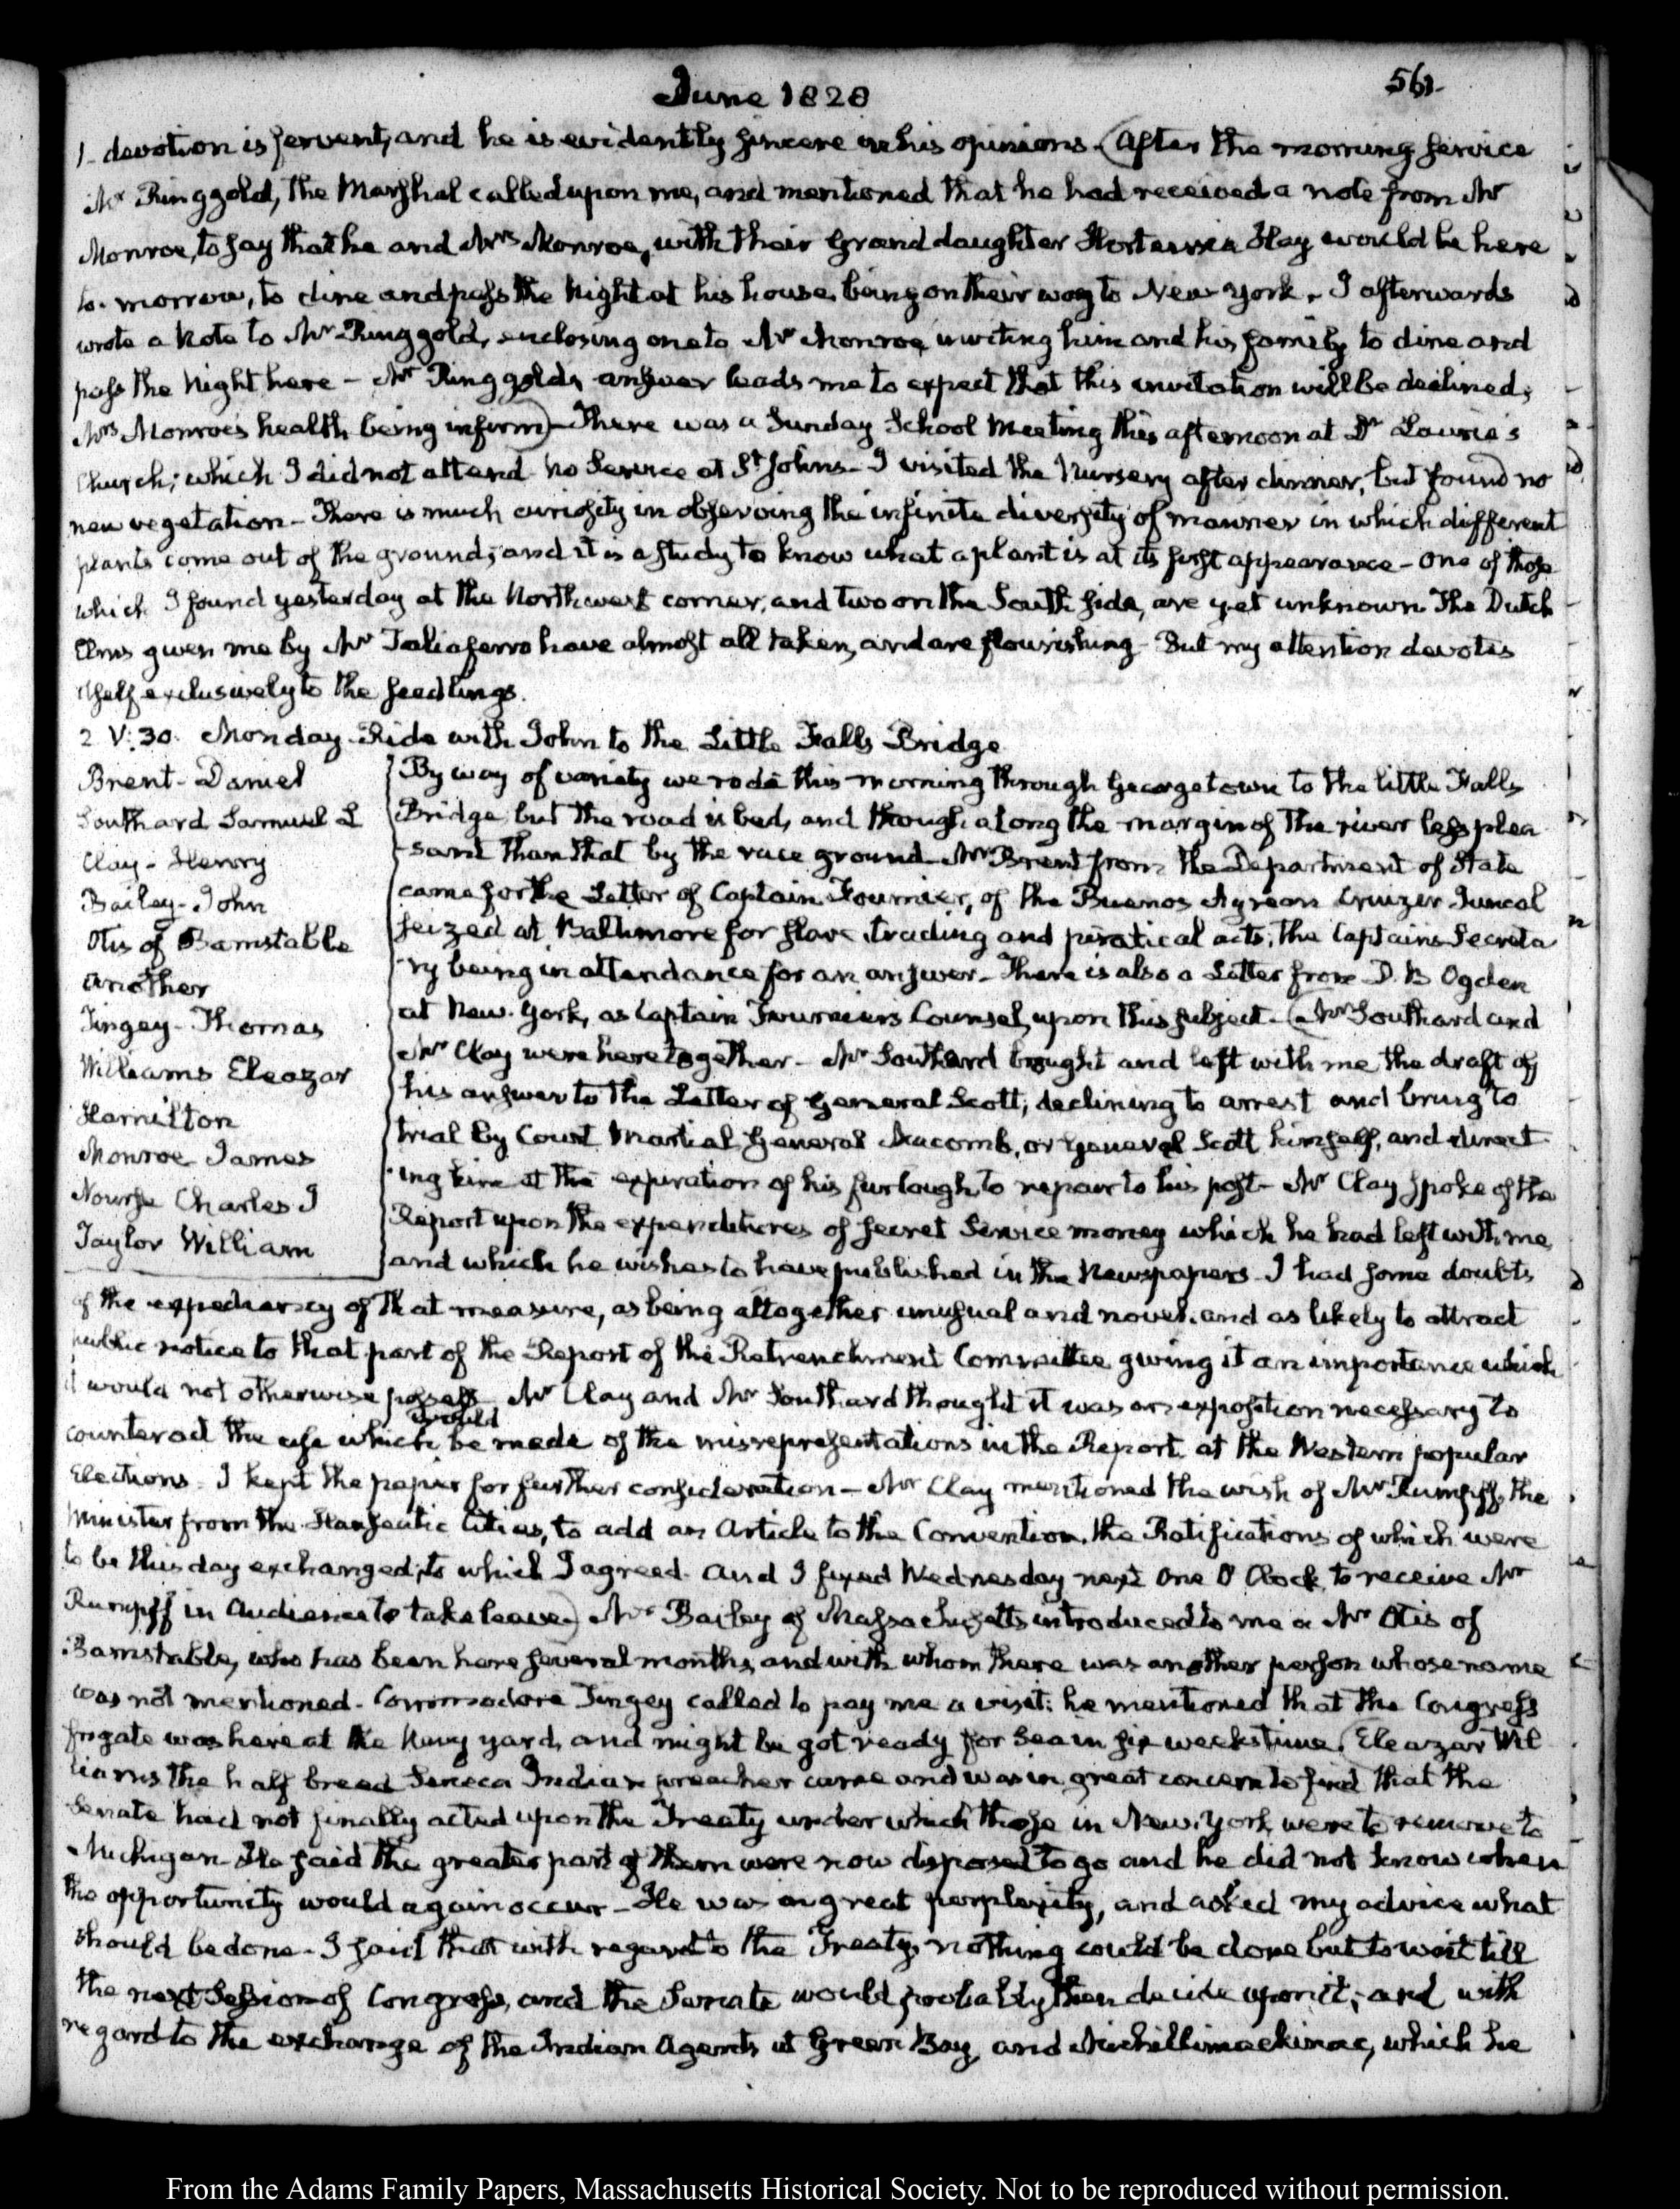 June 1828
561.
1. devotion is fervent, and he is evidently sincere in his opinions. (After the morning service
Mr Ringgold, the Marshal called upon me, and mentioned that he had received a note from Mr
Monroe, to say that he and Mrs Monroe, with their Grand daughter Hortensia Hay would be here
to-morrow, to dine and pass the Night at his house, being on their way to New York. I afterwards
wrote a Note to Mr Ringgold, enclosing one to Mr Monroe, inviting him and his family to dine and
pass the Night here — Mr Ringgold's answer leads me to expect that this invitation will be declined;
Mrs Monroe's health being infirm) — There was a Sunday School Meeting this afternoon at Dr Laurie's
Church; which I did not attend no Service at St. Johns — I visited the Nursery after dinner, but found no
new vegetation — There is much curiosity in observing the infinite diversity of manner in which different
plants come out of the ground; and it is a study to know what a plant is at its first appearance — One of those
which I found yesterday at the North west corner, and two on the South side, are yet unknown The Dutch
Elms given me by Mr Taliaferro have almost all taken, and are flourishing — But my attention devotes
itself exclusively to the seedlings.
2. V:30. Monday. Ride with John to the Little Falls Bridge
Brent - Daniel
Southard Samuel L
Clay - Henry
Bailey - John
Otis of Barnstable
another
Tingey - Thomas
Williams Eleazar
Hamilton
Monroe James
Nourse Charles J
Taylor William
By way of variety we rode this morning through Georgetown to the little Falls
Bridge, but the road is bad, and though along the margin of the river less plea
-sant than that by the race ground — Mr Brent from the Department of State
came for the Letter of Captain Fournier, of the Buenos Ayrean Cruizer Juncal
seized at Baltimore for slave trading and piratical acts; the Captains Secreta
-ry being in attendance for an answer — There is also a Letter from D. B Ogden
at New-York, as Captain Fourniers Counsel, upon this subject. (Mr Southard and
Mr Clay were here together — Mr Southard brought and left with me the draft of
his answer to the Letter of General Scott; declining to arrest and bring to
trial by Court Martial General Macomb, or General Scott himself, and direct
-ing him at the expiration of his furlough, to repair to his post — Mr Clay spoke of the
Report upon the expenditures of secret Service money which he had left with me,
and which he wishes to have published in the Newspapers — I had some doubts
of the expediency of that measure, as being altogether unusual and novel, and as likely to attract
public notice to that part of the Report of the Retrenchment Committee giving it an importance which
it would not otherwise possess Mr Clay and Mr Southard thought it was an exposition necessary to
counteract the use which would be made of the misrepresentations in the Report, at the Western popular
Elections. I kept the paper for further consideration — Mr Clay mentioned the wish of Mr Rumpff, the
Minister from the Hanseatic Cities, to add an Article to the Convention, the Ratifications of which were
to be this day exchanged; to which I agreed. and I fixed Wednesday next One O'Clock, to receive Mr
Rumpff in Audience to take leave.) Mr Bailey of Massachusetts introduced to me a Mr Otis of
Barnstable, who has been here several months, and with whom there was another person whose name
was not mentioned. Commodore Tingey called to pay me a visit: he mentioned that the Congress
frigate was here at the Navy yard, and might be got ready for Sea in six weeks time. (Eleazar Wil
liams the half breed Seneca Indian preacher came and was in great concern to find that the
Senate had not finally acted upon the Treaty under which those in New-York were to remove to
Michigan — He said the greater part of them were now disposed to go and he did not know when
the opportunity would again occur — He was in great perplexity, and asked my advice what
should be done — I said that with regard to the Treaty, nothing could be done but to wait till
the next Session of Congress, and the Senate would probably then decide upon it; and with
regard to the exchange of the Indian Agents at Green Bay, and Michillimackinac, which he
From the Adams Family Papers, Massachusetts Historical Society. Not to be reproduced without permission.